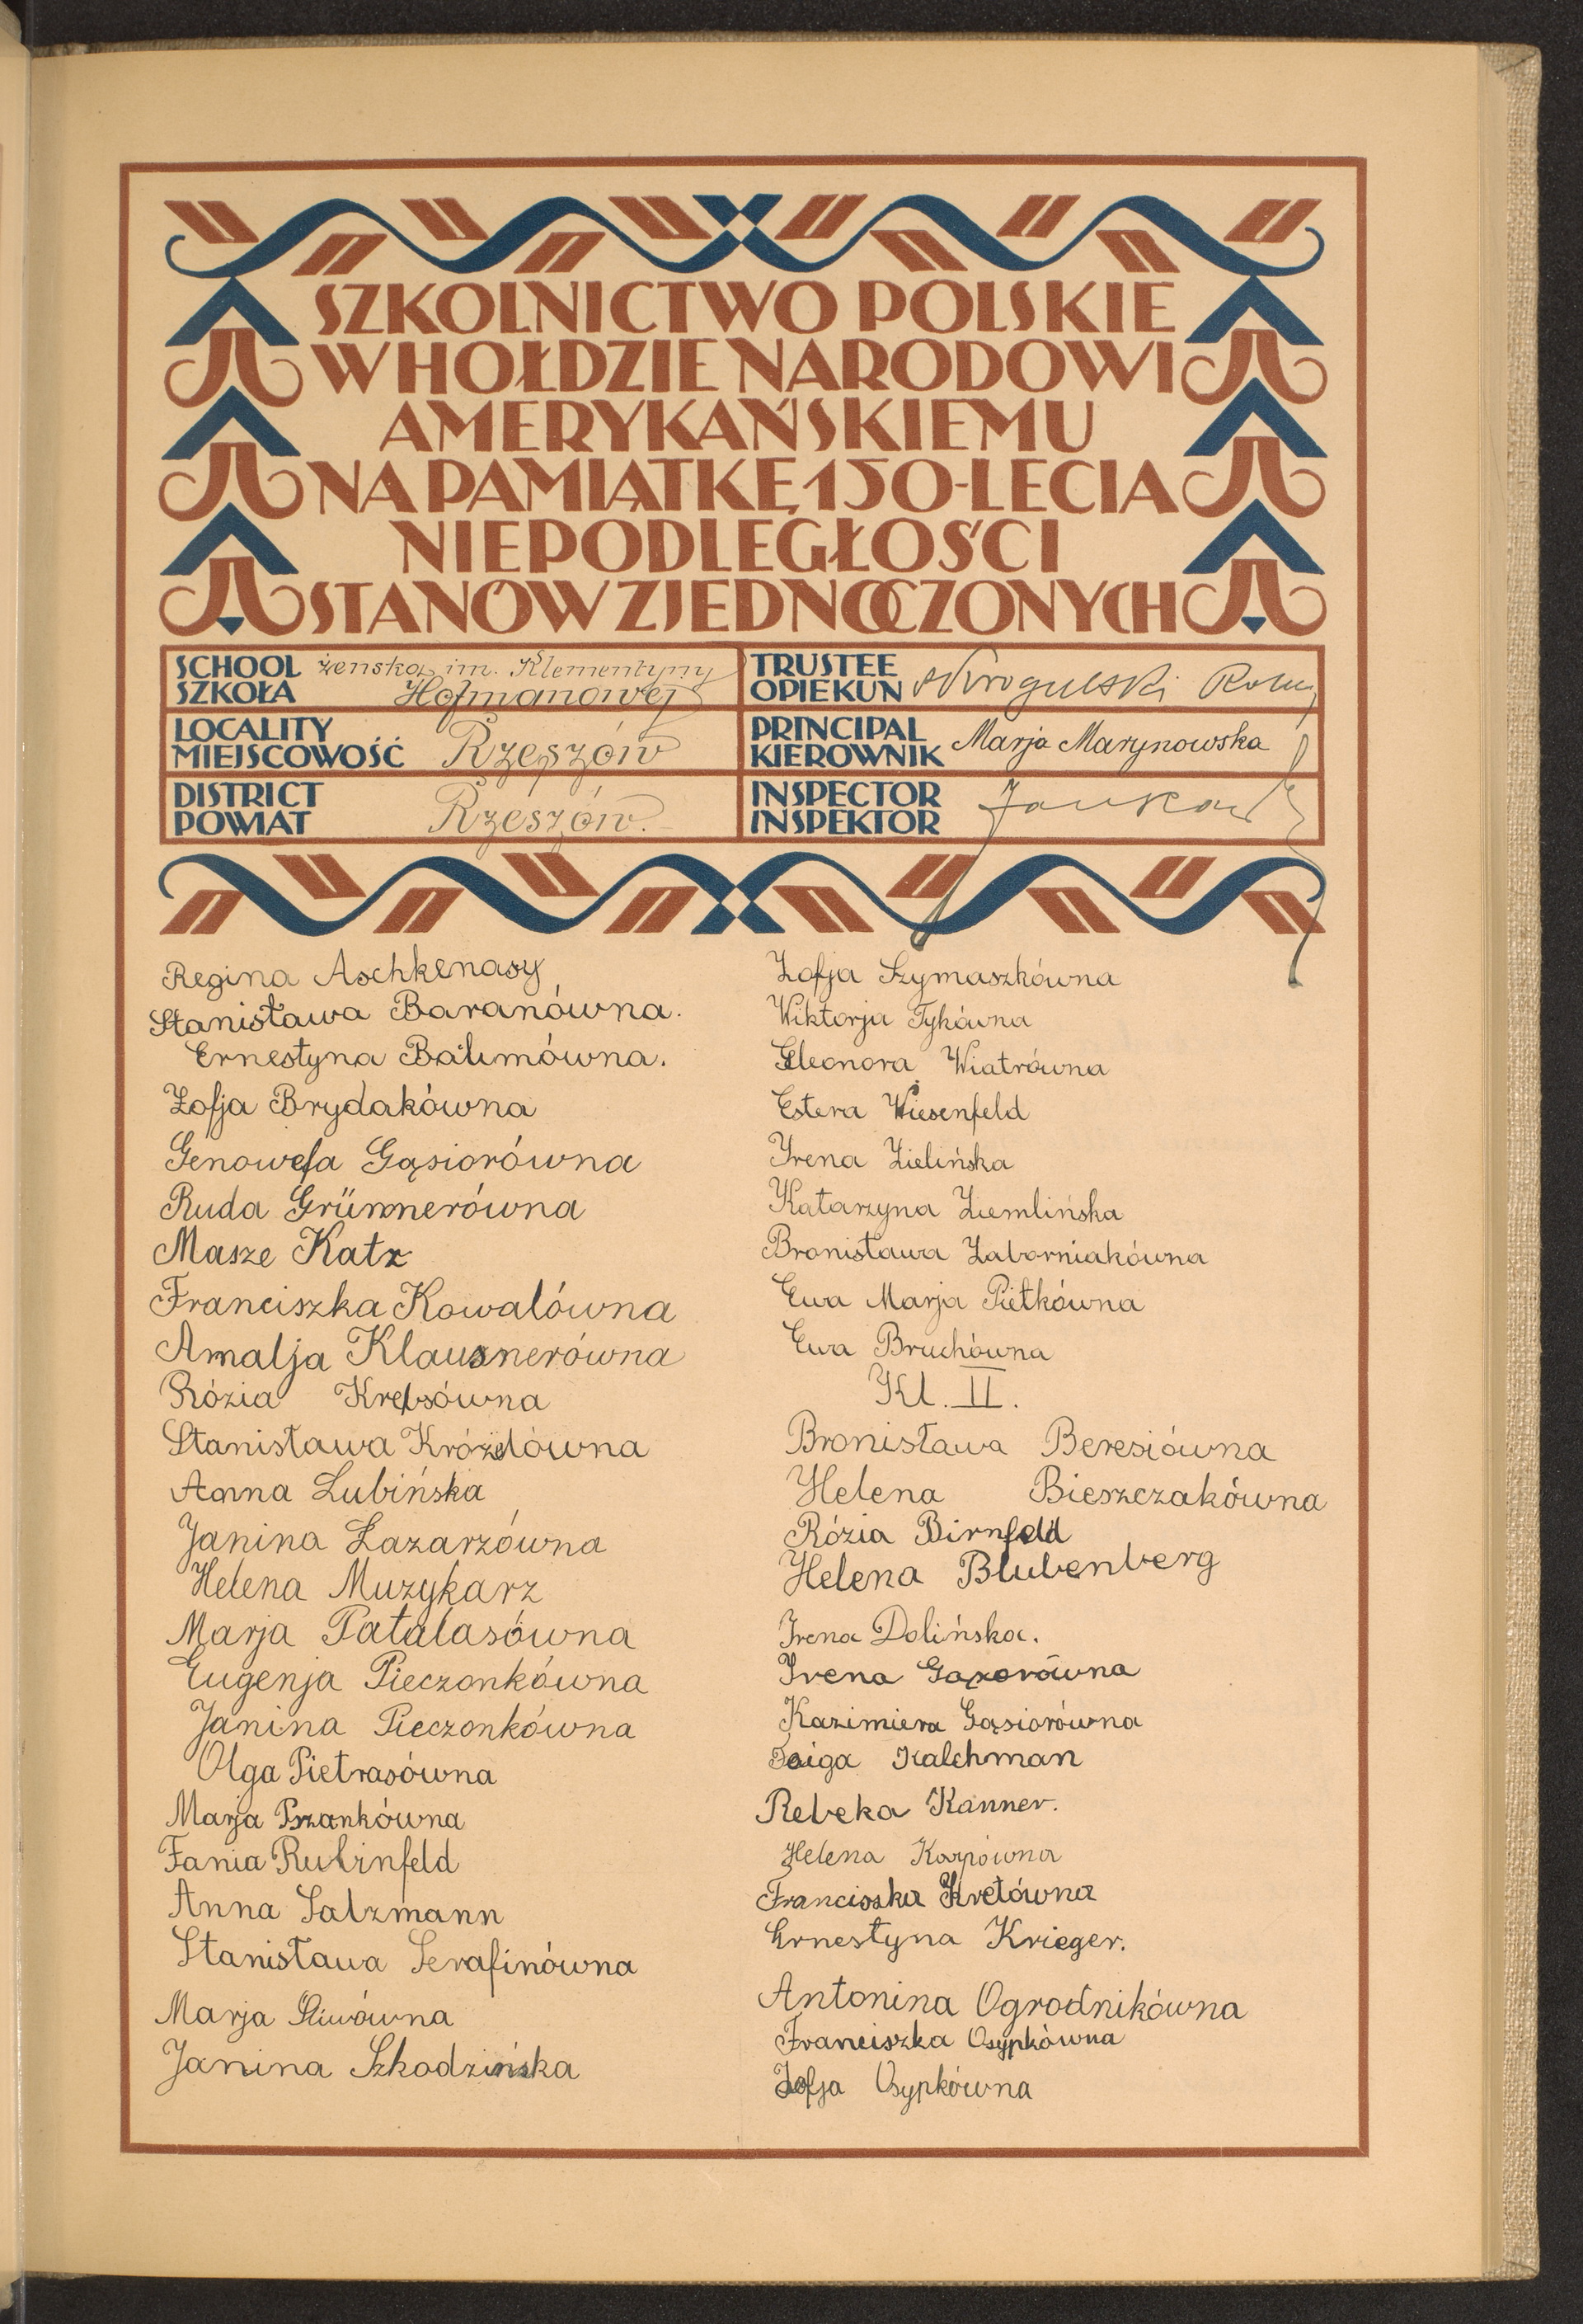 SZKOLNICTWO POLSKIE
W HOŁDZIE NARODOWI
AMERYKAŃSKIEMU
NA PAMIĄTKĘ 150-LECIA
NIEPODLEGŁOŚCI
STANÓW ZJEDNOCZONYCH
SCHOOL żeńska im. Klementyny
SZKOŁA Hofmanowej
LOCALITY
MIEJSCOWOŚĆ Rzeszów
DISTRICT
POWIAT Rzeszów.
TRUSTEE
OPIEKUN
PRINCIPAL
KIEROWNIK Marja Marynowska
INSPECTOR
INSPEKTOR
Regina Aschkenasy
Stanisława Baranówna.
Ernestyna Baumówna.
Zofja Brydakówna
Genowefa Gąsiorówna
Ruda Grünnerówna
Masze Katz
Franciszka Kowalówna
Amalja Klausnerówna
Rózia Krebsówna
Stanisława Króżelówna
Anna Lubińska
Janina Łazarzówna
Helena Muzykarz
Marja Patalasówna
Eugenja Pieczonkówna
Janina Pieczonkówna
Olga Pietrasówna
Marja Pszankówna
Fania Rubinfeld
Anna Salzmann
Stanisława Serafinówna
Marja Śliwówna
Janina Szkodzińska
Zofja Szymaszkówna
Wiktorja Tykówna
Eleonora Wiatrówna
Estera Wiesenfeld
Irena Zielińska
Katarzyna Ziemlińska
Bronisława Zaborniakówna
Ewa Marja Piętkówna
Ewa Bruchówna
Kl. II.
Bronisława Beresiówna
Helena Bieszczakówna
Rózia Birnfeld
Helena Blubenberg
Irena Dolińska.
Irena
Kazimiera Gąsiorówna
Kalchman
Rebeka Kanner.
Helena Karpówna
Franciszka Kretówna
Ernestyna Krieger.
Antonina Ogrodnikówna
Franciszka Osypkówna
Zofja Osypkówna